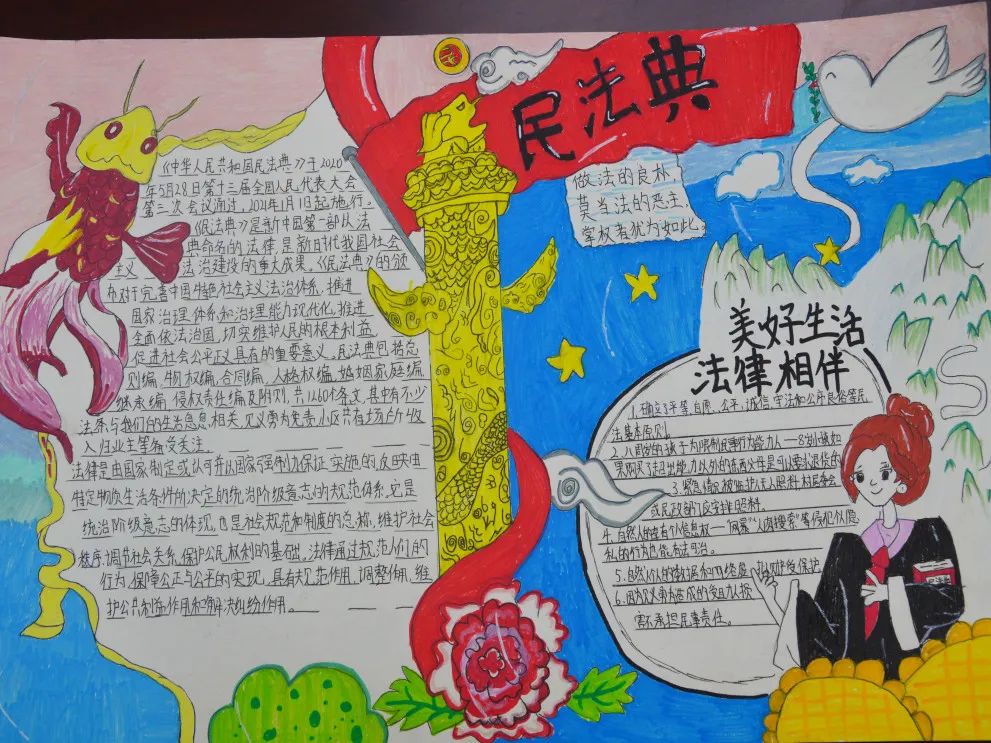 民法典
做法的良朴
莫当法的恶主
掌权者犹为如此
《中华人民共和国民法典》于2020
年5月28日第十三届全国人民代表大会
第三次会议通过,2021年1月1日起施行。
《民法典》是新中国第一部以法
典命名的法律是新时代我国社会
主义法治建设的重大成果。《民法典》的颁
布对于完善中国特色社会主义法治体系,推进
国家治理体系和治理能力现代化,推进
全面依法治国,切实维护人民的根本利益,
促进社会公平正义具有的重要意义。民法典包括总
则编,物权编,合同编,人格权编,婚姻家庭编,
继承编,侵权责任编及附则,共1260条文,其中有不少
法条与我们的生活息息相关,见义勇为免责小区共有场所收
入归业主等备受关注。
法律是由国家制定或认可并以国家强制力保证实施的,反映由
特定物质生活条件所决定的统治阶级意志的规范体系,它是
统治阶级意志的体现,也是社会规范和制度的总称,维护社会
秩序,调节社会关系,保护公民权利的基础。法律通过规范人们的
行为,保障公正与公平的实现,具有规范作用,调整作用,维
护公共利益作用和解决纠纷作用。
美好生活
法律相伴
1.确立了平等,自愿,公平,诚信,守法和公序良俗等民
法基本原则
2.八周岁的孩子为限制民事行为能力人——8岁小孩如
果购买了超出能力以外的东西父母是可以要求退偿的
3.紧急情况被监护人无人照料,村居委会
或民政部门应安排照料。
4.自然人的享有个信息权——"网暴""人肉搜索"等侵犯公隐
私的行为也能有法可治。
5.自然人个人的数据和网络虚拟财产受保护
6.因为见义勇为造成的受助人损
害不承担民事责任。